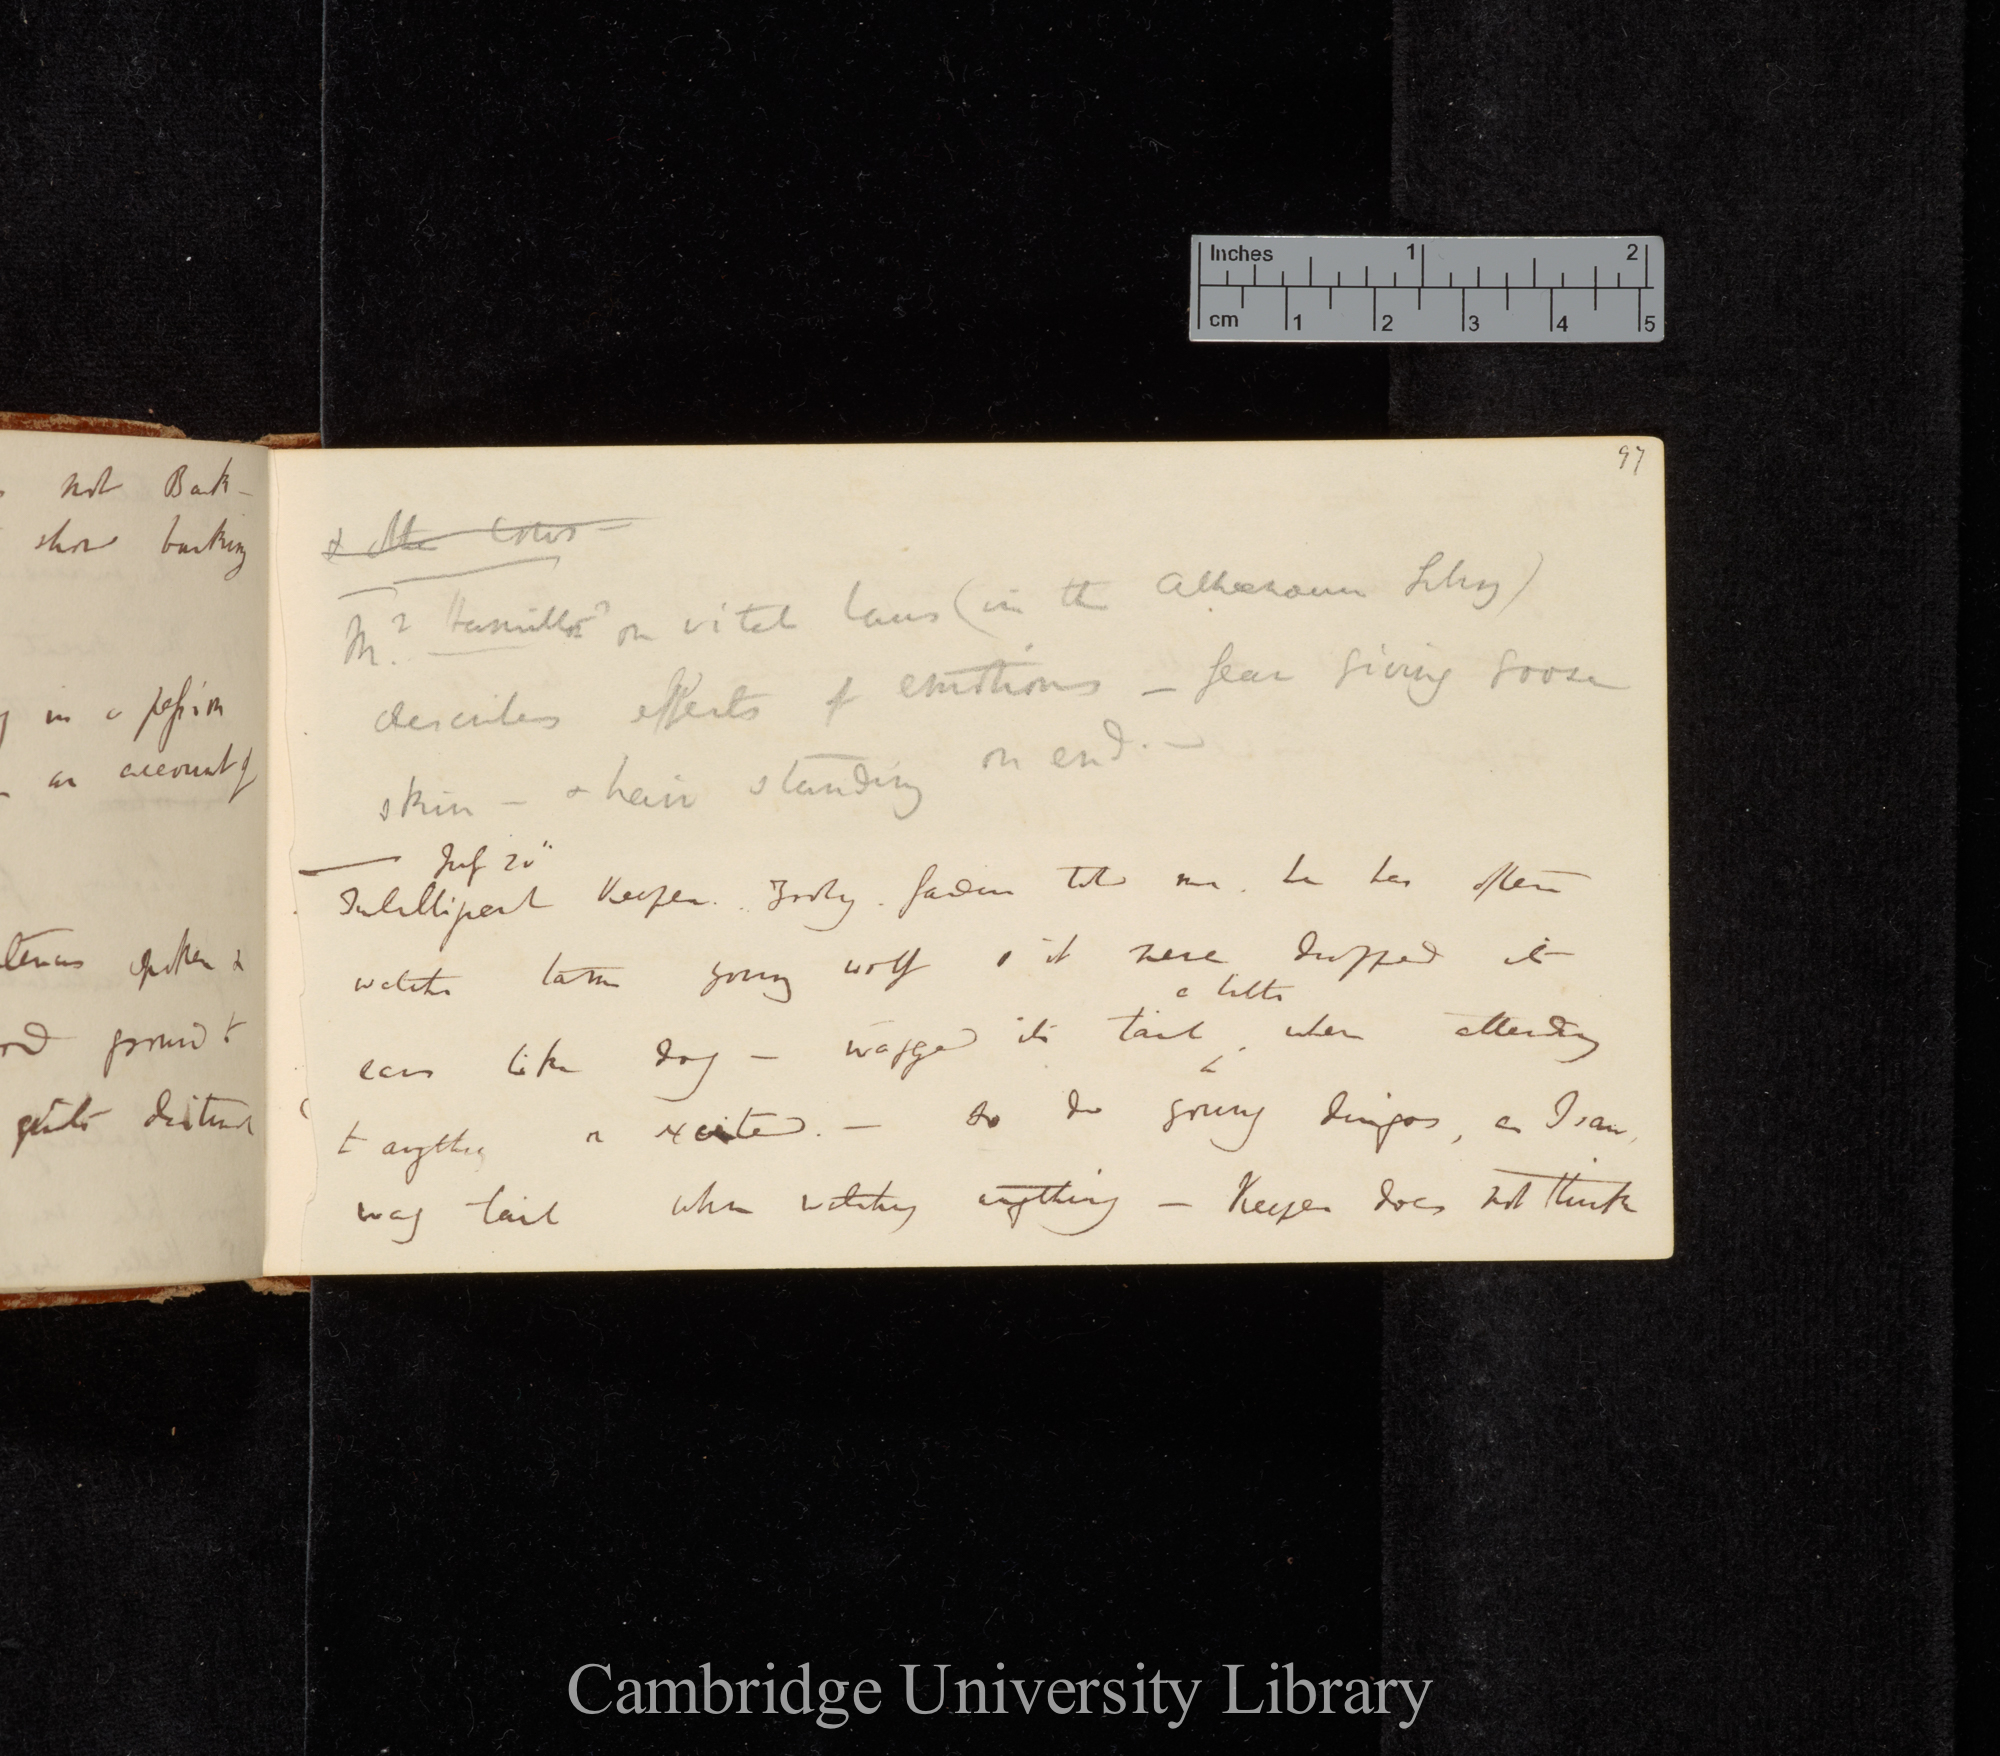 not Bark-
show barking
in a passion
an account of
spoken &
ground t
quite distinct
97
& other Cows —
Mr Hamilton on vital laws (in the Athenaeum Library)
describes effects of emotions — fear giving goose
skin — & hair standing on end. —
July 20th
Intelligent Keeper. Zoolog. Garden told me. he has often
watched tame young wolf & it never dropped its
a little
ears like dog — wagged its tail ^ when attending
to anything or excited. — so do young dingos, as I saw,
wag tail when watching anything — Keeper does not think
Inches 1 2
cm 1 2 3 4 5
Cambridge University Library